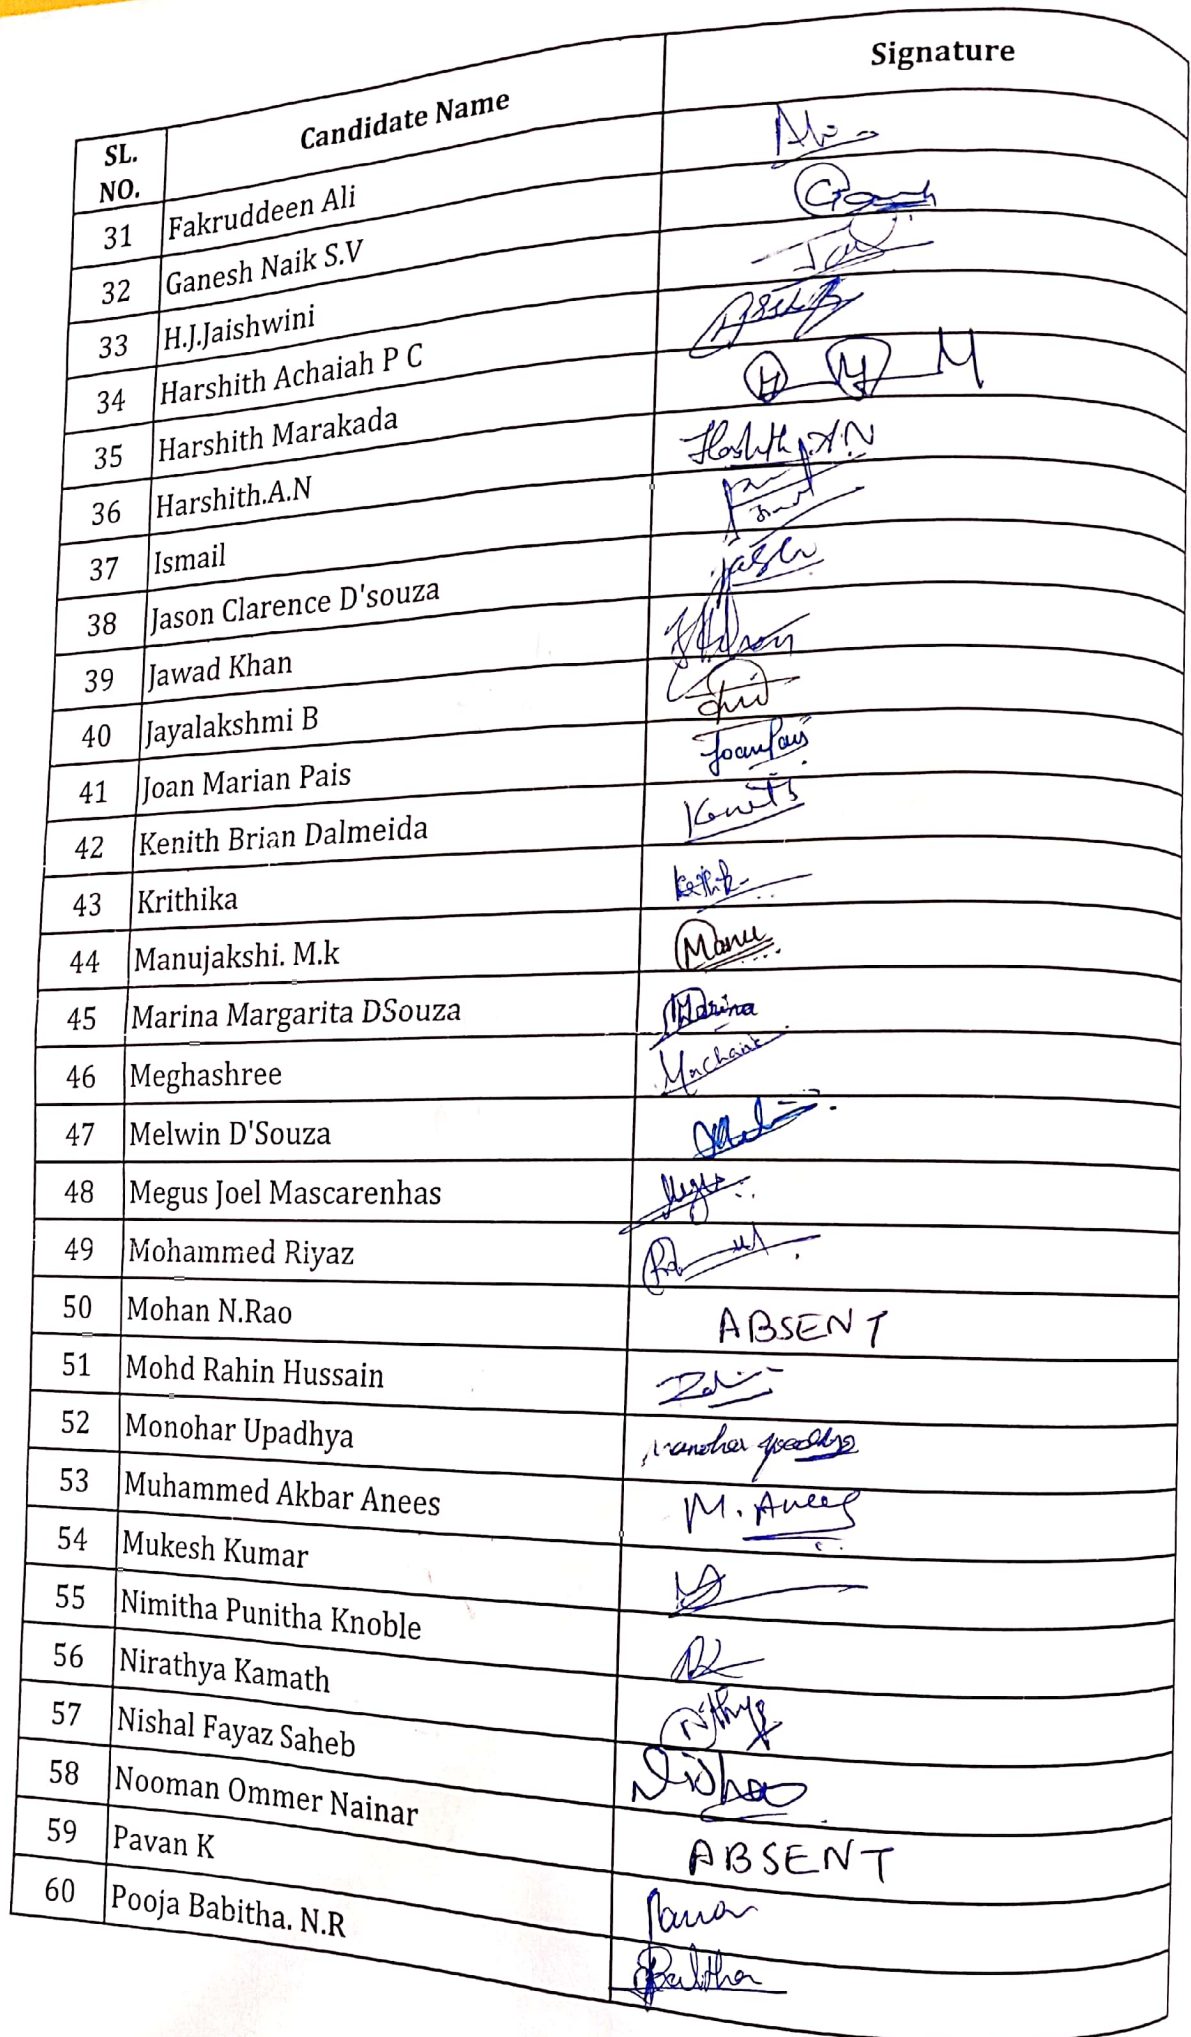 SL. NO. Candidate Name Signature
31 Fakruddeen Ali
32 Ganesh Naik S.V
33 H.J.Jaishwini
34 Harshith Achaiah P C
35 Harshith Marakada
36 Harshith.A.N Harshith.A.N
37 Ismail
38 Jason Clarence D'souza
39 Jawad Khan
40 Jayalakshmi B
41 Joan Marian Pais Joan Pais
42 Kenith Brian Dalmeida
43 Krithika
44 Manujakshi. M.k Manu
45 Marina Margarita DSouza Marina
46 Meghashree
47 Melwin D'Souza
48 Megus Joel Mascarenhas
49 Mohammed Riyaz
50 Mohan N.Rao ABSENT
51 Mohd Rahin Hussain
52 Monohar Upadhya
53 Muhammed Akbar Anees M. Anees
54 Mukesh Kumar
55 Nimitha Punitha Knoble
56 Nirathya Kamath
57 Nishal Fayaz Saheb
58 Nooman Ommer Nainar ABSENT
59 Pavan K
60 Pooja Babitha. N.R Babitha